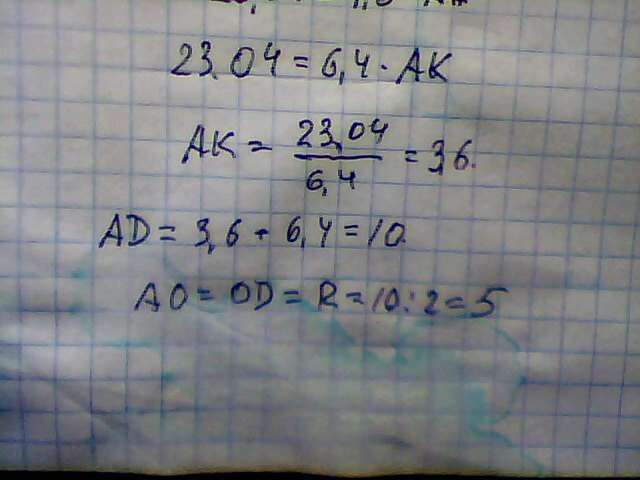 23.04 = 6,4 · AK
AK = 23,04 / 6,4 = 3,6.
AD = 3,6 + 6,4 = 10.
AO = OD = R = 10 : 2 = 5